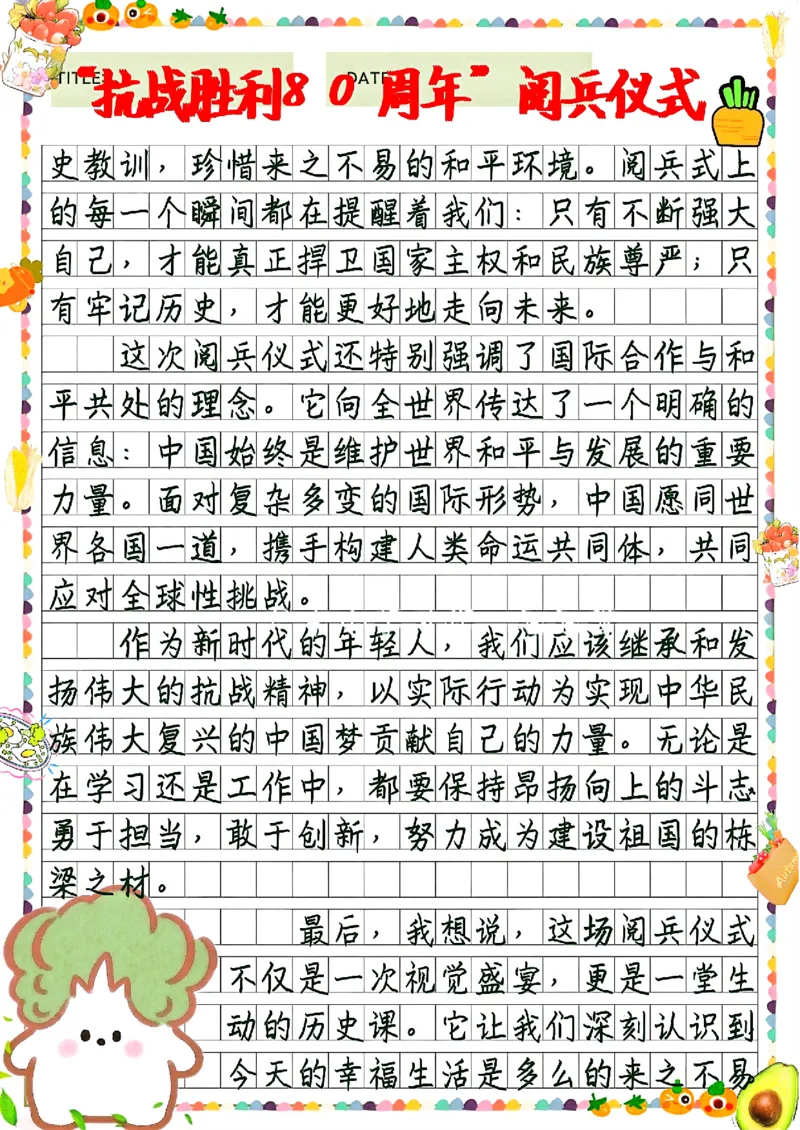 TITLE:
DATE
“抗战胜利80周年”阅兵仪式
史教训，珍惜来之不易的和平环境。阅兵式上
的每一个瞬间都在提醒着我们：只有不断强大
自己，才能真正捍卫国家主权和民族尊严；只
有牢记历史，才能更好地走向未来。
这次阅兵仪式还特别强调了国际合作与和
平共处的理念。它向全世界传达了一个明确的
信息：中国始终是维护世界和平与发展的重要
力量。面对复杂多变的国际形势，中国愿同世
界各国一道，携手构建人类命运共同体，共同
应对全球性挑战。
作为新时代的年轻人，我们应该继承和发
扬伟大的抗战精神，以实际行动为实现中华民
族伟大复兴的中国梦贡献自己的力量。无论是
在学习还是工作中，都要保持昂扬向上的斗志，
勇于担当，敢于创新，努力成为建设祖国的栋
梁之材。
最后，我想说，这场阅兵仪式
不仅是一次视觉盛宴，更是一堂生
动的历史课。它让我们深刻认识到
今天的幸福生活是多么的来之不易